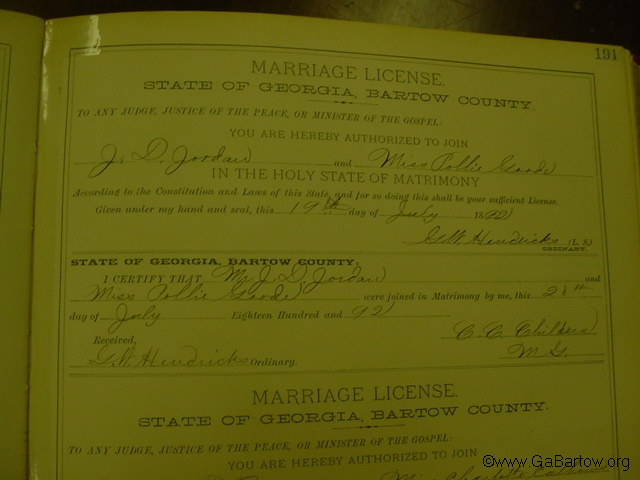 191
MARRIAGE LICENSE.
STATE OF GEORGIA, BARTOW COUNTY.
TO ANY JUDGE, JUSTICE OF THE PEACE, OR MINISTER OF THE GOSPEL:
YOU ARE HEREBY AUTHORIZED TO JOIN
J. D. Jordan and Miss Pollie Goode
IN THE HOLY STATE OF MATRIMONY
According to the Constitution and Laws of this State, and for so doing this shall be your sufficient License.
Given under my hand and seal, this 19th day of July 1892
G.W. Hendricks (L. S.)
ORDINARY.
STATE OF GEORGIA, BARTOW COUNTY.
I CERTIFY THAT Mr J. D. Jordan and
Miss Pollie Goode were joined in Matrimony by me, this
day of July Eighteen Hundred and 92
C. C. Childers
Received, M. G.
G.W. Hendricks Ordinary.
MARRIAGE LICENSE.
STATE OF GEORGIA, BARTOW COUNTY.
TO ANY JUDGE, JUSTICE OF THE PEACE, OR MINISTER OF THE GOSPEL:
YOU ARE HEREBY AUTHORIZED TO JOIN
Charlotte Calhoun
©www.GaBartow.org